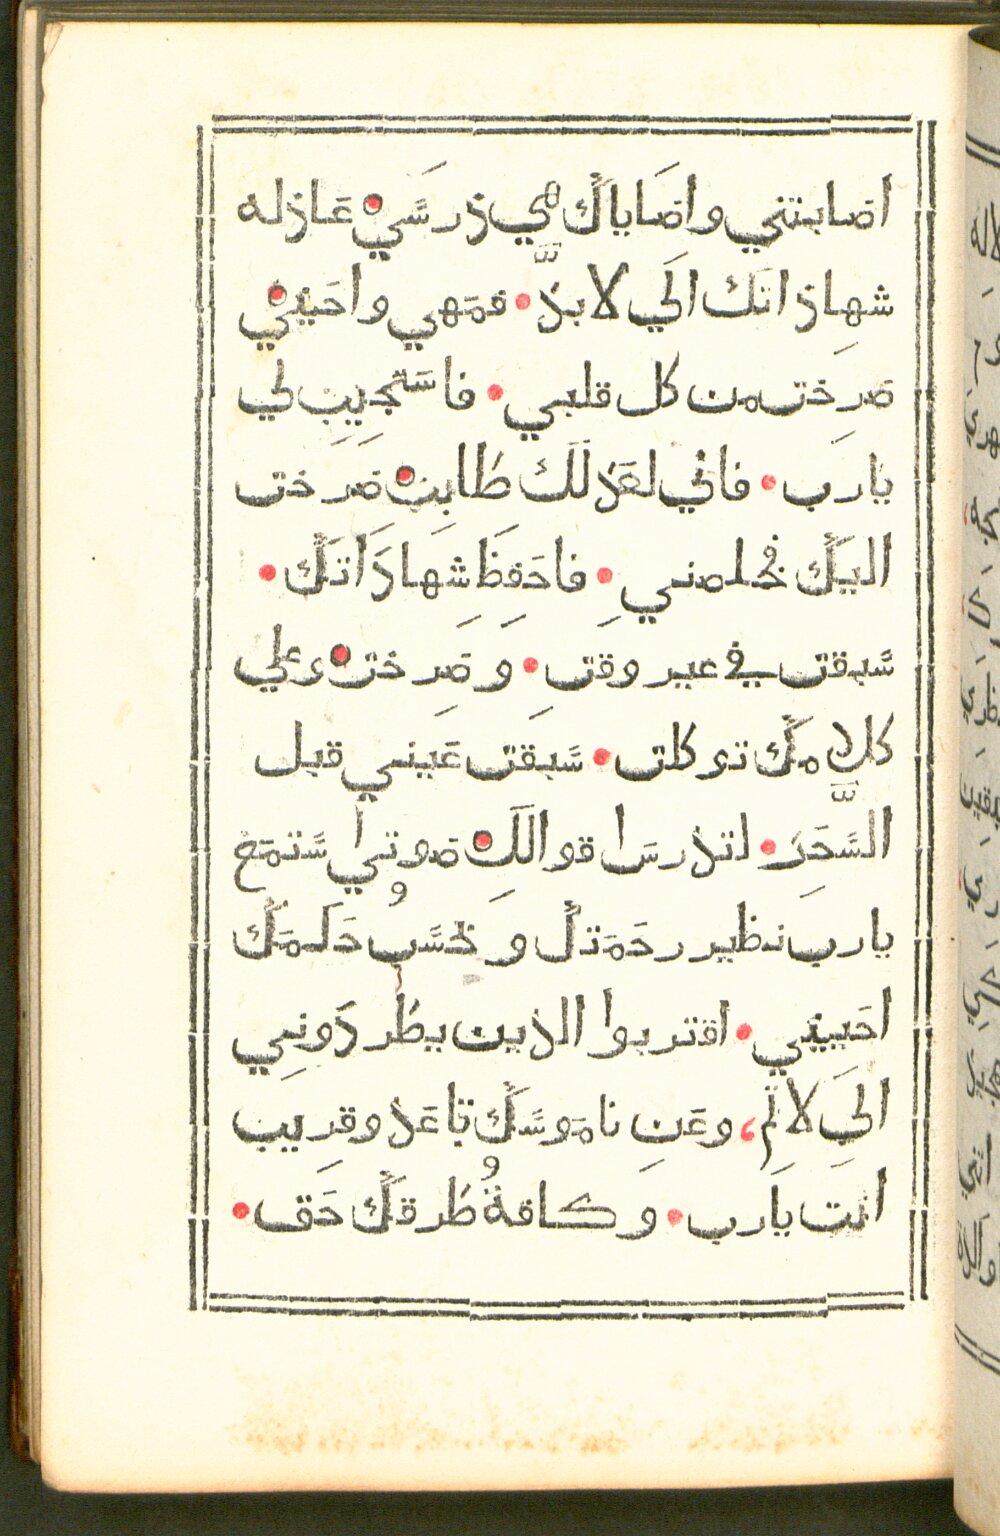 اصابتني واصاياك هي ذرسي عاذله
شهاذاتك الي لابذ • فمهي واحييني
صرخت من كل قلبي • فاستجيب لي
يارب • فاني لعذلك طالبت صرخت
اليك خلصني • فاحفظ شهاداتك •
سبقت في عير وقت • وصرخت وعلي
كلامك توكلت • سبقت عيني قبل
السحر • لتذرس اقوالك صوتي استمع
يارب نظير رحمتك وحسب حكمك
احييني • اقتربوا الذين يطردوني
الي لاثم، وعن ناموسك تباعذ وقريب
انت يارب • وكافة طرقك حق •